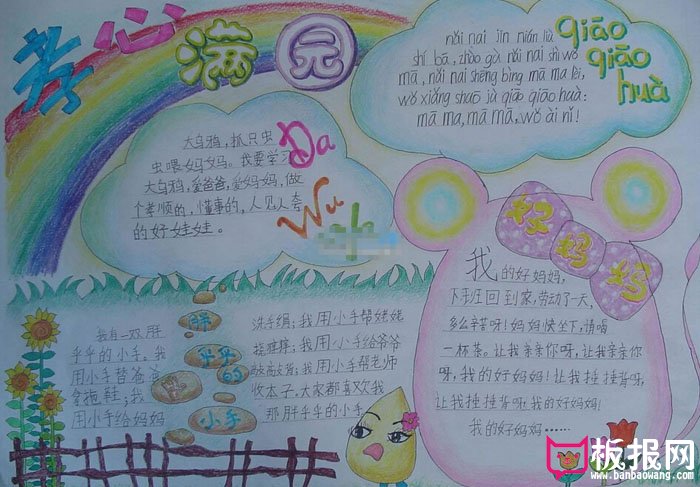 孝心满园
大乌鸦,抓只虫
虫喂妈妈。我要学习
大乌鸦,爱爸爸,爱妈妈,做
个孝顺的,懂事的,人见人夸
的好娃娃。
Da
Wu
qiāo
qiāo
huà
nǎi nai jīn nián liù
shí bā, zhào gù nǎi nai shì wǒ
mā, nǎi nai shēng bìng mā ma lèi,
wǒ xiǎng shuō jù qiāo qiāo huà:
mā ma, mā mā, wǒ ài nǐ!
好妈妈
我的好妈妈,
下班回到家,劳动了一天,
多么辛苦呀!妈妈快坐下,请喝
一杯茶。让我亲亲你呀,让我亲亲你
呀,我的好妈妈!让我捶捶背呀,
让我捶捶背呀!我的好妈妈!
我的好妈妈……
胖
乎乎
的
小手
我有一双胖
乎乎的小手。我
用小手替爸爸
拿拖鞋;我
用小手给妈妈
洗手绢;我用小手帮姥姥
挠痒痒;我用小手给爷爷
我用小手帮老师
收本子,大家都喜欢我
那胖乎乎的小手
板报网
www.banbaowang.com